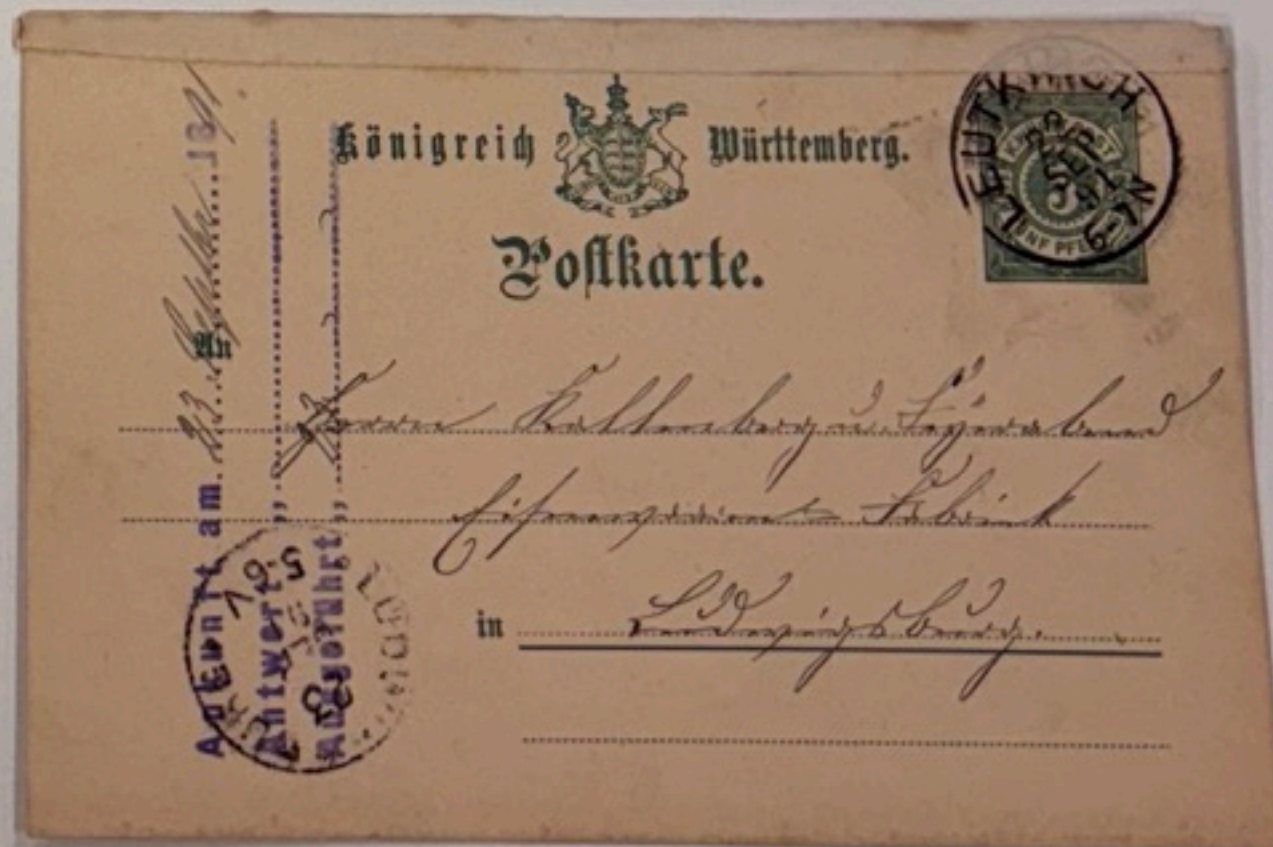 Königreich Württemberg.
Postkarte.
LEUTKIRCH
22 SEP 91
6-7 N
FÜNF PFENNIG
An
Herrn Kaltenberg u. Feyerabend
Eisenwaaren Fabrik
in Ludwigsburg.
Ankunft am 23. Septbr. 1891
Antwort "
Ausgeführt "
LUDWIGSBURG
23
5-6 V